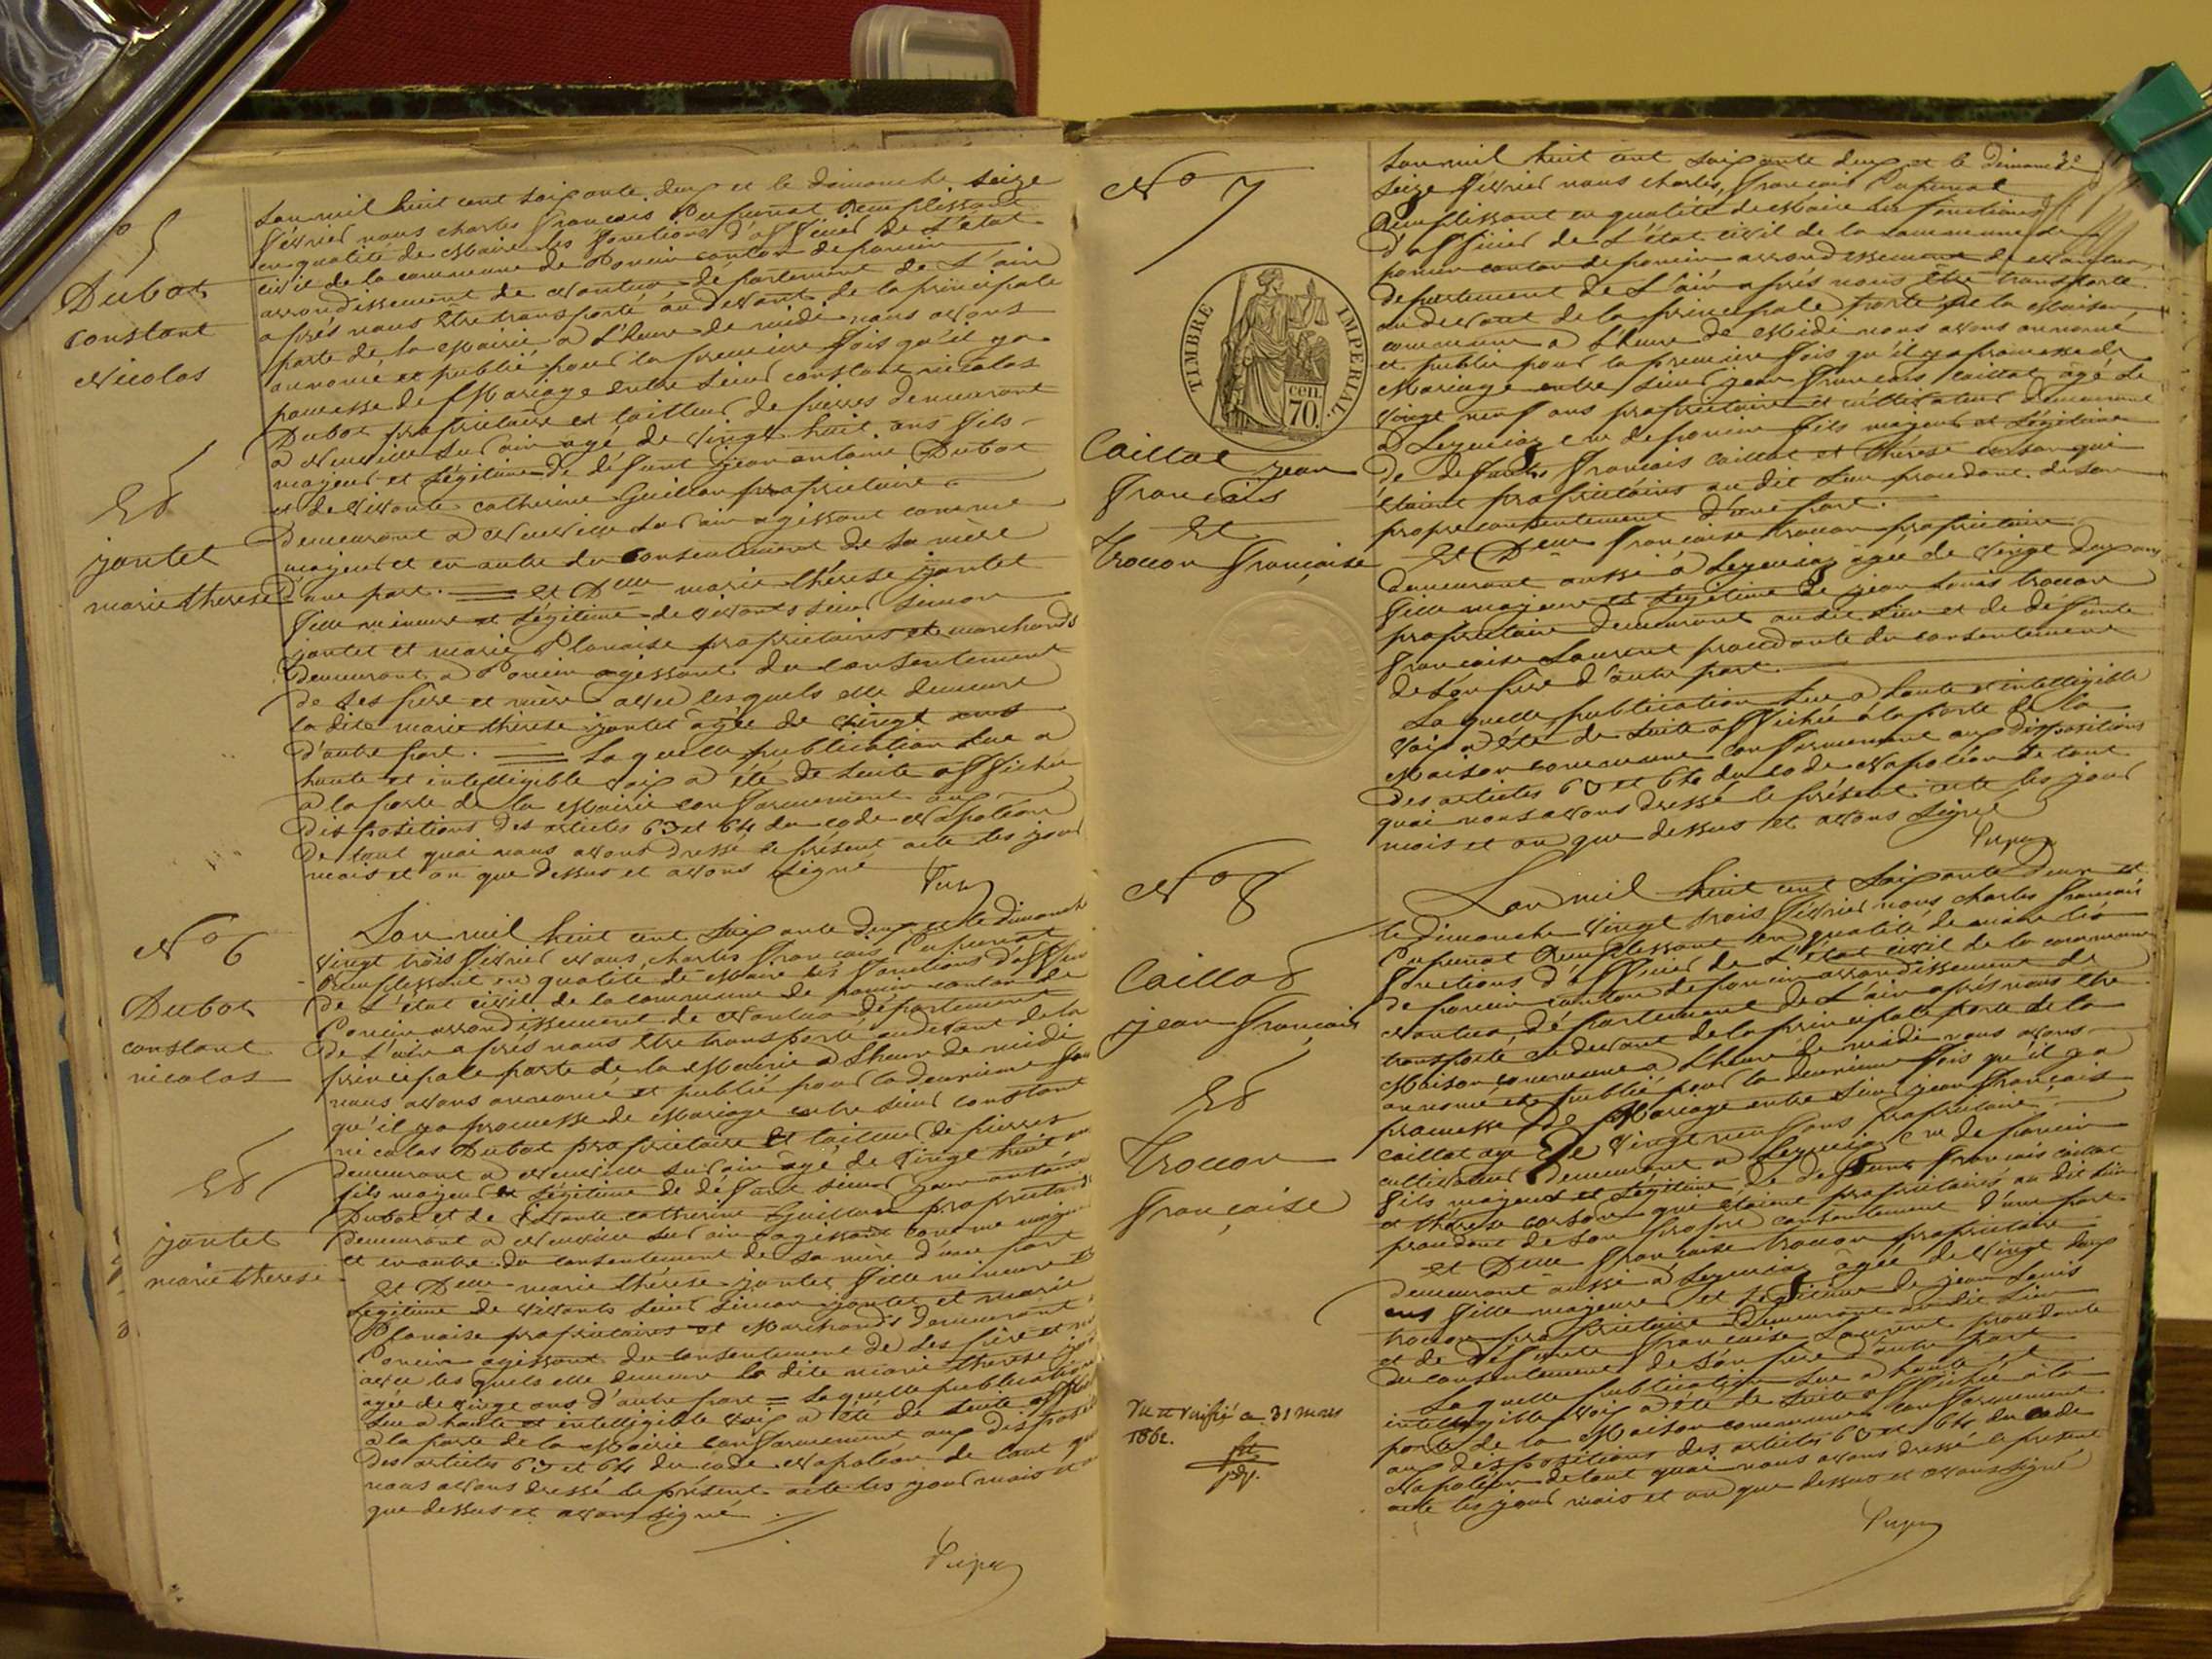 N° 5
Dubot
constant
Nicolas
Et
jantet
marie therese
L'an mil huit cent soixante deux et le dimanche seize
février nous charles francois Pupunat Remplissant
en qualité de Maire les fonctions d'officier de L'état
civil de la commune de Poncin canton de poncin
arrondissement de Nantua département de L'ain
après nous être transporté au devant de la principale
porte de la Mairie a L'heure de midi nous avons
annoncé et publié pour la premiere fois qu'il y a
promesse de Mariage entre sieur constant nicolas
Dubot propriétaire et tailleur de pierres demeurant
a Neuville sur ain agé de vingt huit ans fils
majeur et Légitime de défunt jean antoine Dubot
et de vivante catherine Guillon propriétaire
demeurant a Neuville sur ain agissant comme
majeur et en outre du consentement de sa mère
d'une part. = et Delle marie thérese jantet
fille mineure et Légitime de vivants sieur simon
jantet et marie Planaise propriétaires et marchands
demeurant a Poncin agissant du consentement
de ses père et mère avec lesquels elle demeure
la dite marie thérese jantet agée de vingt ans
d'autre part. = Laquelle publication lue a
haute et intelligible voix a été de suite affichée
a la porte de la Mairie conformément aux
dispositions des articles 63 et 64 du code Napoléon
de tout quoi nous avons dressé le présent acte les jour
mois et an que dessus et avons signé
N° 6
Dubot
constant
nicolas
Et
jantet
marie therese
L'an mil huit cent soixante deux et le dimanche
vingt trois février nous charles francois Pupunat
Remplissant en qualité de Maire les fonctions d'officier
de L'état civil de la commune de poncin canton de
Poncin arrondissement de Nantua département
de L'ain après nous être transporté au devant de la
principale porte de la Mairie a L'heure de midi
nous avons annoncé et publié pour la deuxieme fois
qu'il y a promesse de Mariage entre sieur constant
nicolas Dubot propriétaire et tailleur de pierres
demeurant a Neuville sur ain agé de vingt huit ans
fils majeur et Légitime de défunt sieur jean antoine
Dubot et de vivante catherine Guillon propriétaire
demeurant a Neuville sur ain agissant comme majeur
et en outre du consentement de sa mère d'une part
et Delle marie thérese jantet fille mineure et
Légitime de vivants sieur simon jantet et marie
Planaise propriétaires et Marchands demeurant a
Poncin agissant du consentement de ses père et mère
avec lesquels elle demeure la dite marie therese
agée de vingt ans d'autre part = Laquelle publication
lue a haute et intelligible voix a été de suite affichée
a la porte de la Mairie conformément aux dispositions
des articles 63 et 64 du code Napoléon de tout quoi
nous avons dressé le présent acte les jour mois et an
que dessus et avons signé
N° 7
TIMBRE IMPERIAL.
cen. 70.
Caillat jean
francais
Et
trocon francaise
L'an mil huit cent soixante deux et le dimanche
seize février nous charles francois Pupunat
Remplissant en qualité de Maire les fonctions
d'officier de L'état civil de la commune de
poncin canton de poncin arrondissement de Nantua
département de L'ain après nous être transporté
au devant de la principale porte de la Maison
commune a L'heure de Midi nous avons annoncé
et publié pour la premiere fois qu'il y a promesse de
Mariage entre sieur jean francais caillat agé de
vingt neuf ans propriétaire et cultivateur demeurant
a Leymiaz cne de poncin fils majeur et Légitime
de defunts francais caillat et thérese qui
étaient propriétaires au dit lieu procedant de son
propre consentement d'une part.
Et Delle francaise trocon propriétaire
demeurant aussi a Leymiaz agée de vingt deux ans
fille majeure et Légitime de jean Louis trocon
propriétaire demeurant au dit lieu et de défunte
francaise Laurent procedante du consentement
de son père d'autre part.
Laquelle publication lue a haute et intelligible
voix a été de suite affichée a la porte de la
Maison commune conformément aux dispositions
des articles 63 et 64 du code Napoléon de tout
quoi nous avons dressé le présent acte les jour
mois et an que dessus et avons signé
N° 8
Caillat
jean francais
Et
trocon
francaise
L'an mil huit cent soixante deux et
le dimanche vingt trois février nous charles francais
Pupunat Remplissant en qualité de maire les
fonctions d'officier de L'état civil de la commune
de poncin canton de poncin arrondissement de
Nantua, département de L'ain après nous être
transporté au devant de la principale porte de la
Maison commune a L'heure de midi nous avons
annoncé et publié pour la deuxieme fois qu'il y a
promesse de Mariage entre sieur jean francais
caillat agé de vingt neuf ans propriétaire
cultivateur demeurant a Leymiaz cne de poncin
fils majeur et Légitime de defunt francais caillat
et thérese qui étaient propriétaires au dit lieu
procedant de son propre consentement d'une part
et Delle francaise trocon propriétaire
demeurant aussi a Leymiaz agée de vingt deux
ans fille majeure et Légitime de jean Louis
trocon propriétaire demeurant au dit lieu
et de défunte francaise Laurent procedante
du consentement de son père d'autre part
Laquelle publication lue a haute et
intelligible voix a été de suite affichée a la
porte de la Maison commune conformément
aux dispositions des articles 63 et 64 du code
Napoléon de tout quoi nous avons dressé le présent
acte les jour mois et an que dessus et avons signé
Vu et vérifié ce 31 mars
1862.